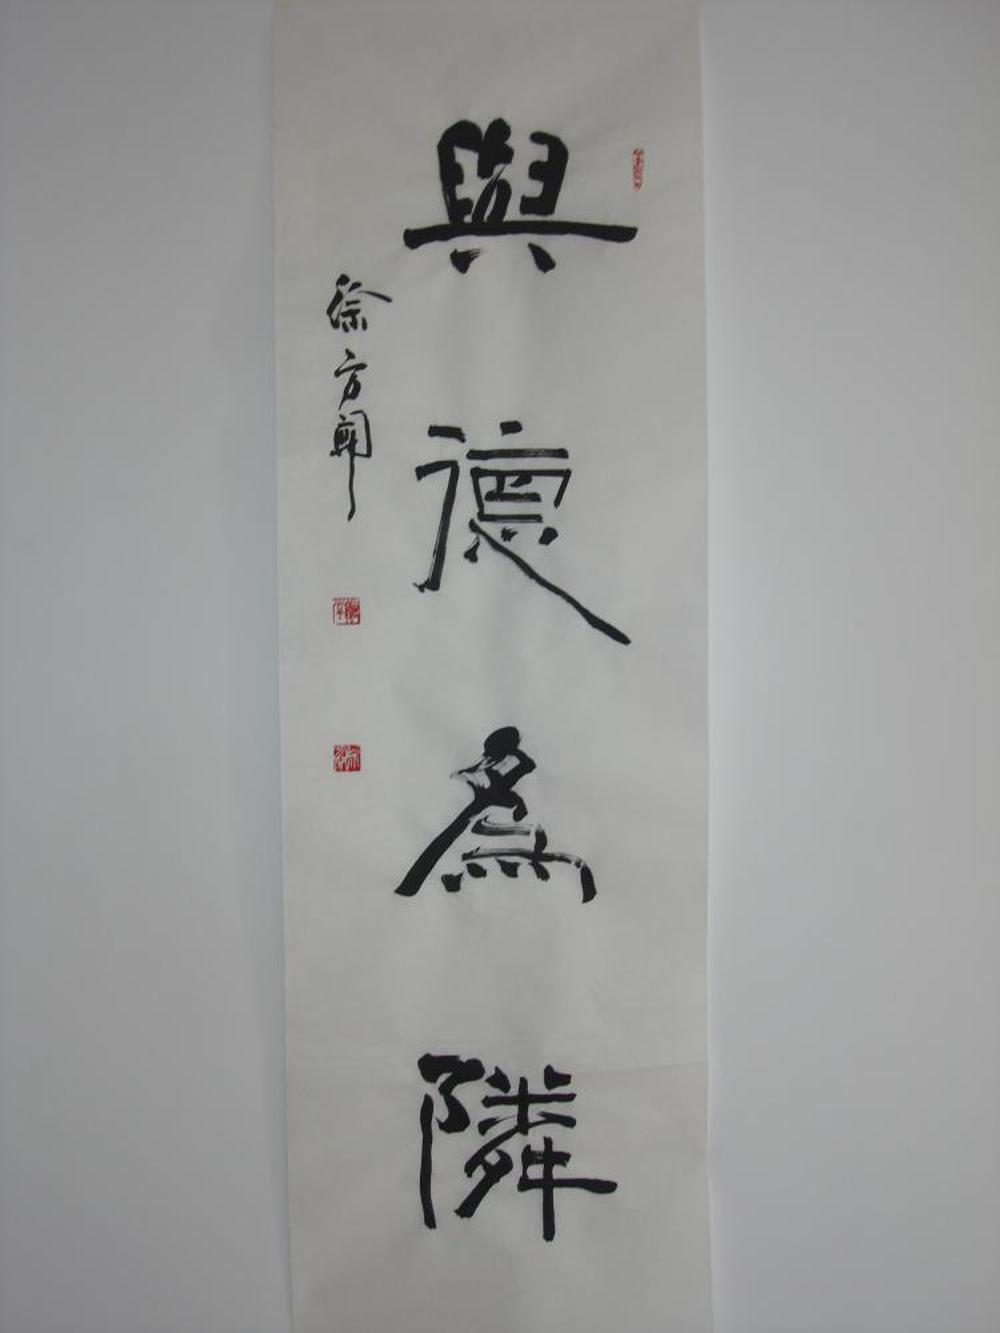 與德為隣
徐方聞